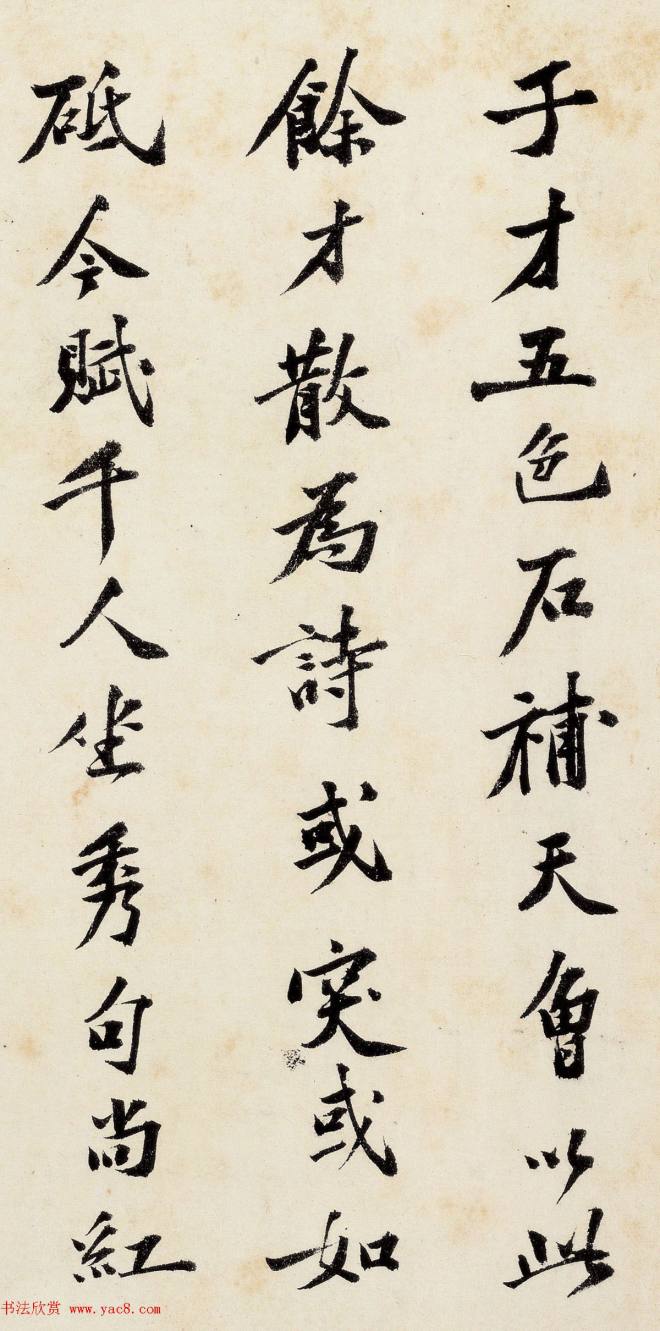 子才五色石補天曾以此
餘才散為詩或突或如
砥今賦千人坐秀句尚紅
书法欣赏 www.yac8.com